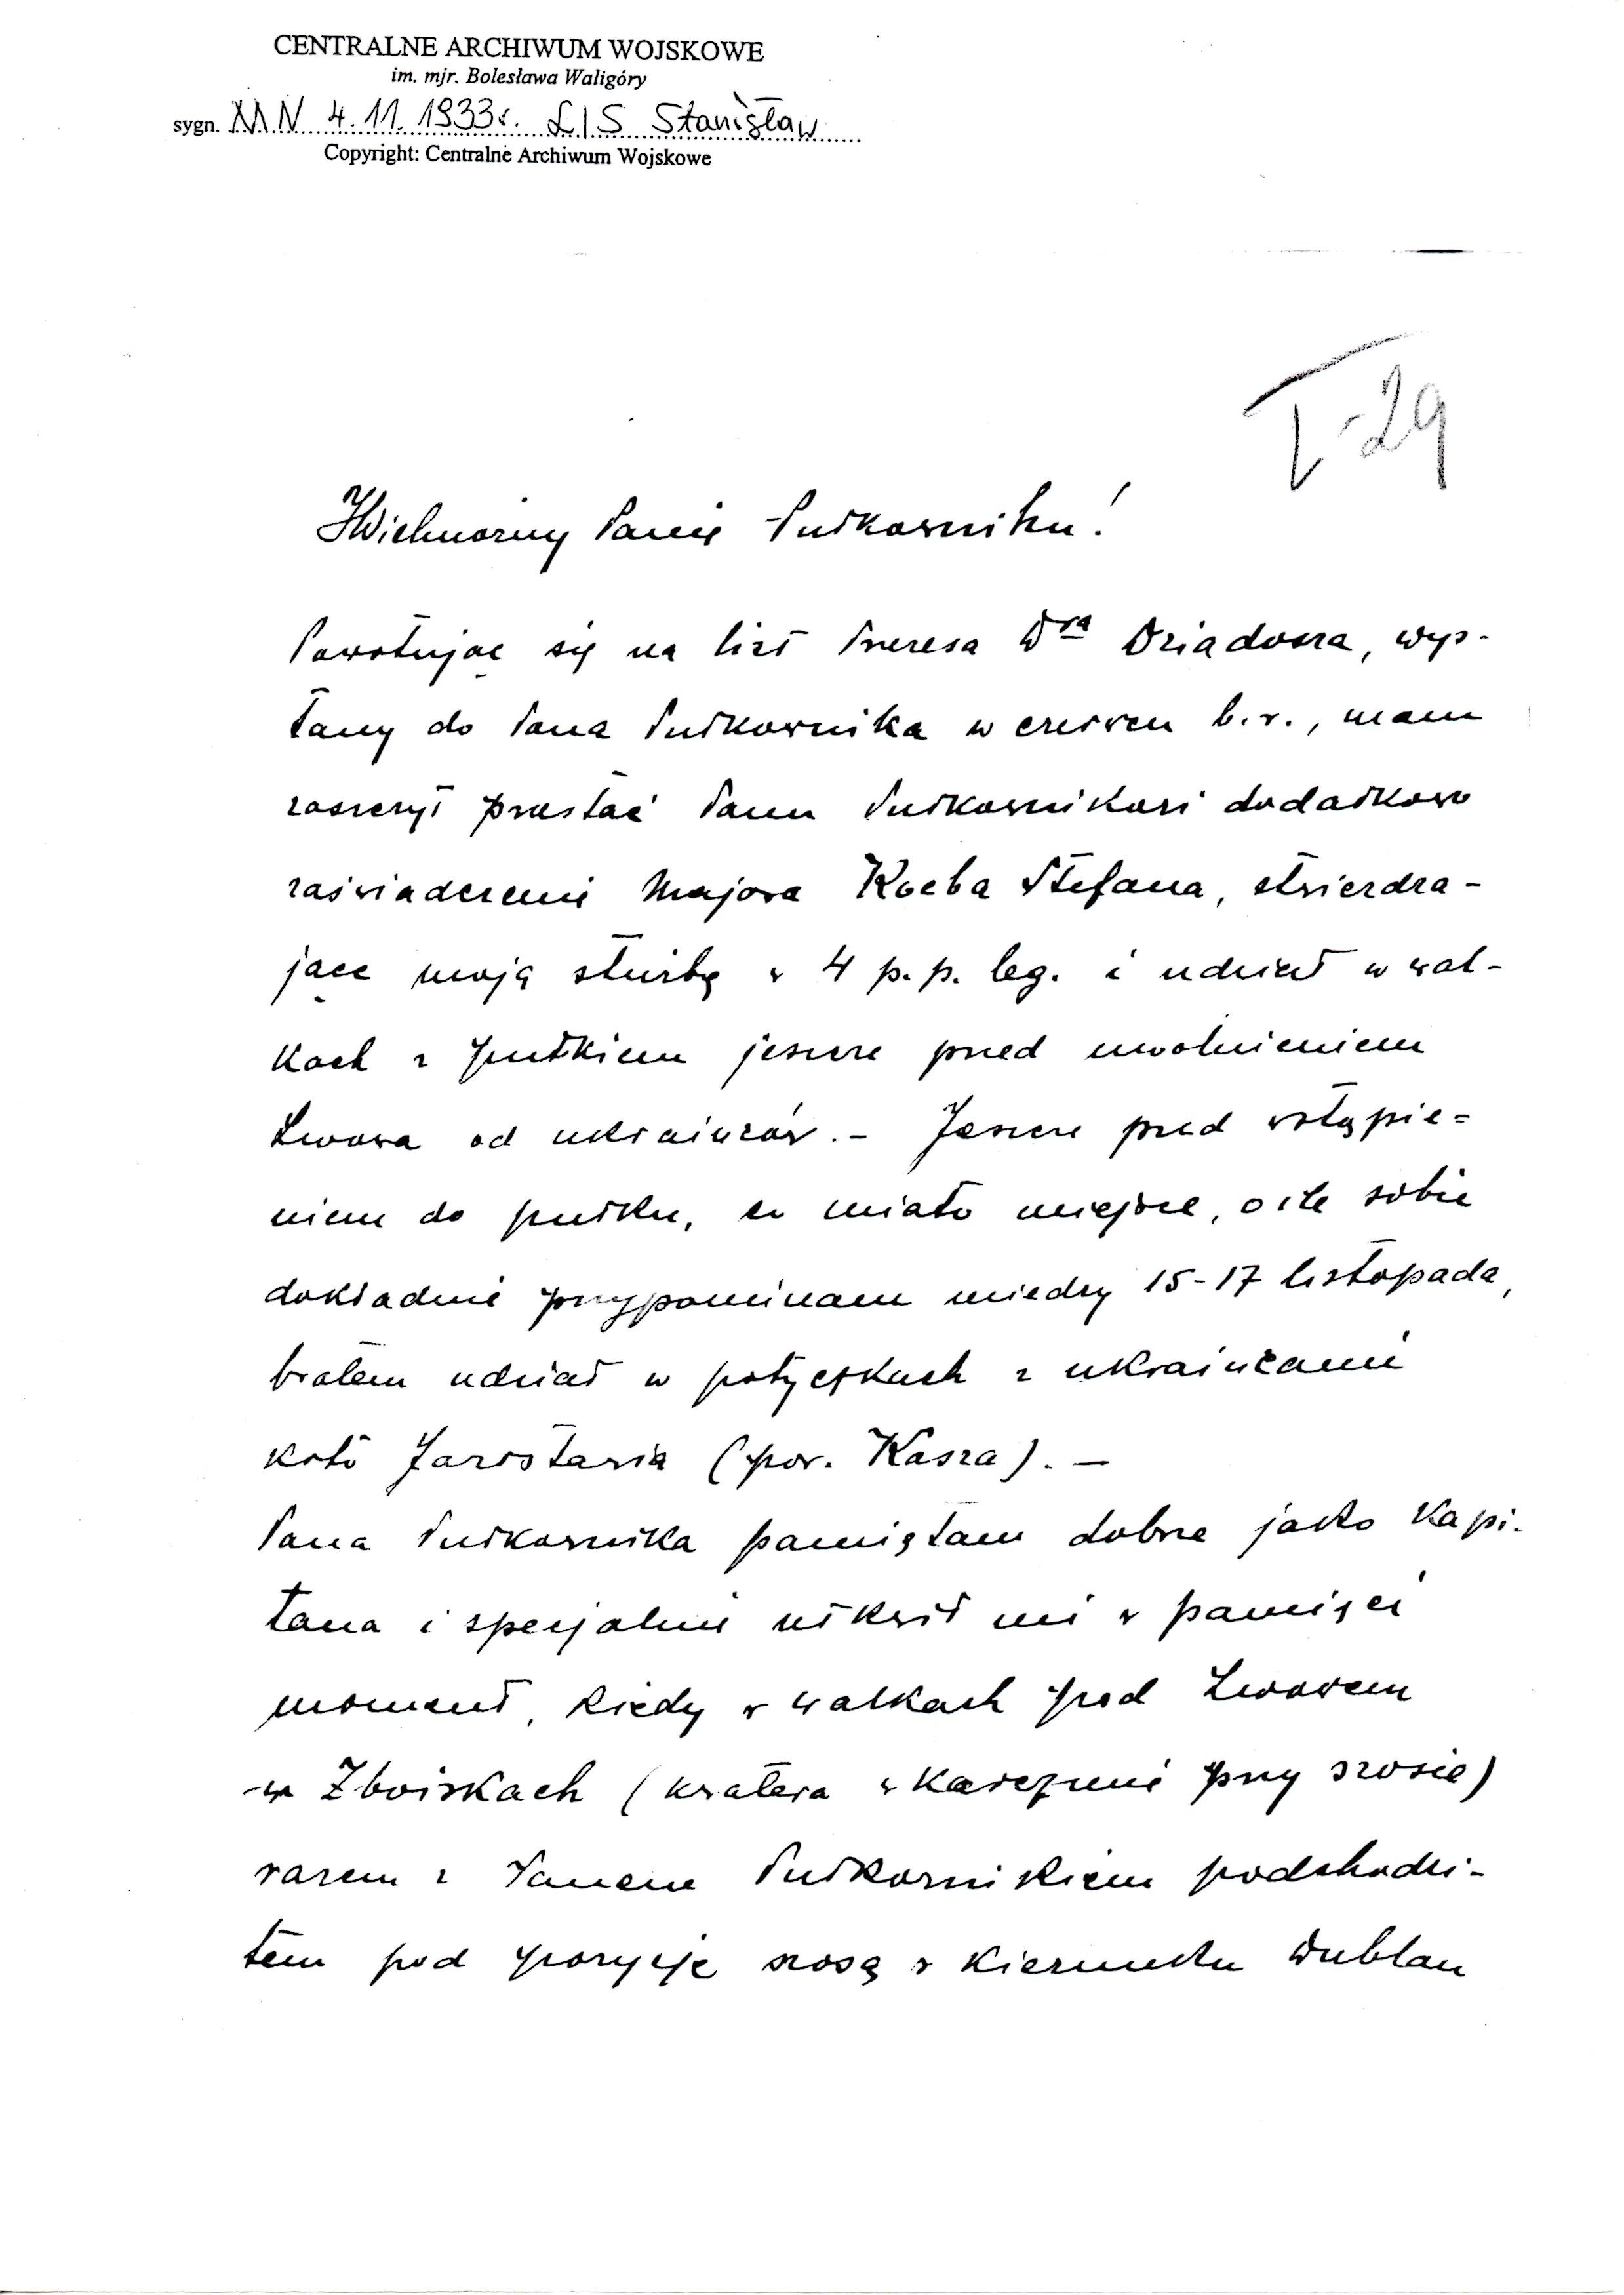 CENTRALNE ARCHIWUM WOJSKOWE
im. mjr. Bolesława Waligóry
sygn. MN 4.11.1933r. LIS Stanisław
Copyright: Centralne Archiwum Wojskowe
I-29
JWielmożny Panie Pułkowniku!
Powołując się na list Prezesa Dra Dziadosza, wys-
łany do Pana Pułkownika w czerwcu b.r., mam
zaszczyt przesłać Panu Pułkownikowi dodatkowo
zaświadczenie Majora Koeba Stefana, stwierdza-
jące moją służbę w 4 p.p. leg. i udział w wal-
kach z pułkiem jeszcze przed uwolnieniem
Lwowa od ukraińców.- Jeszcze przed wstąpie=
niem do pułku, co miało miejsce, o ile sobie
dokładnie przypominam miedzy 15-17 listopada,
brałem udział w potyczkach z ukraińcami
koło Jarosławia (por. Kasza). -
Pana Pułkownika pamiętam dobrze jako Kapi-
tana i specjalnie utkwił mi w pamięci
moment, kiedy w walkach pod Lwowem
w Zboiskach (kwatera w karczmie przy szosie)
razem z Panem Pułkownikiem podchodzi-
łem pod pozycje szosą w kierunku Dublan